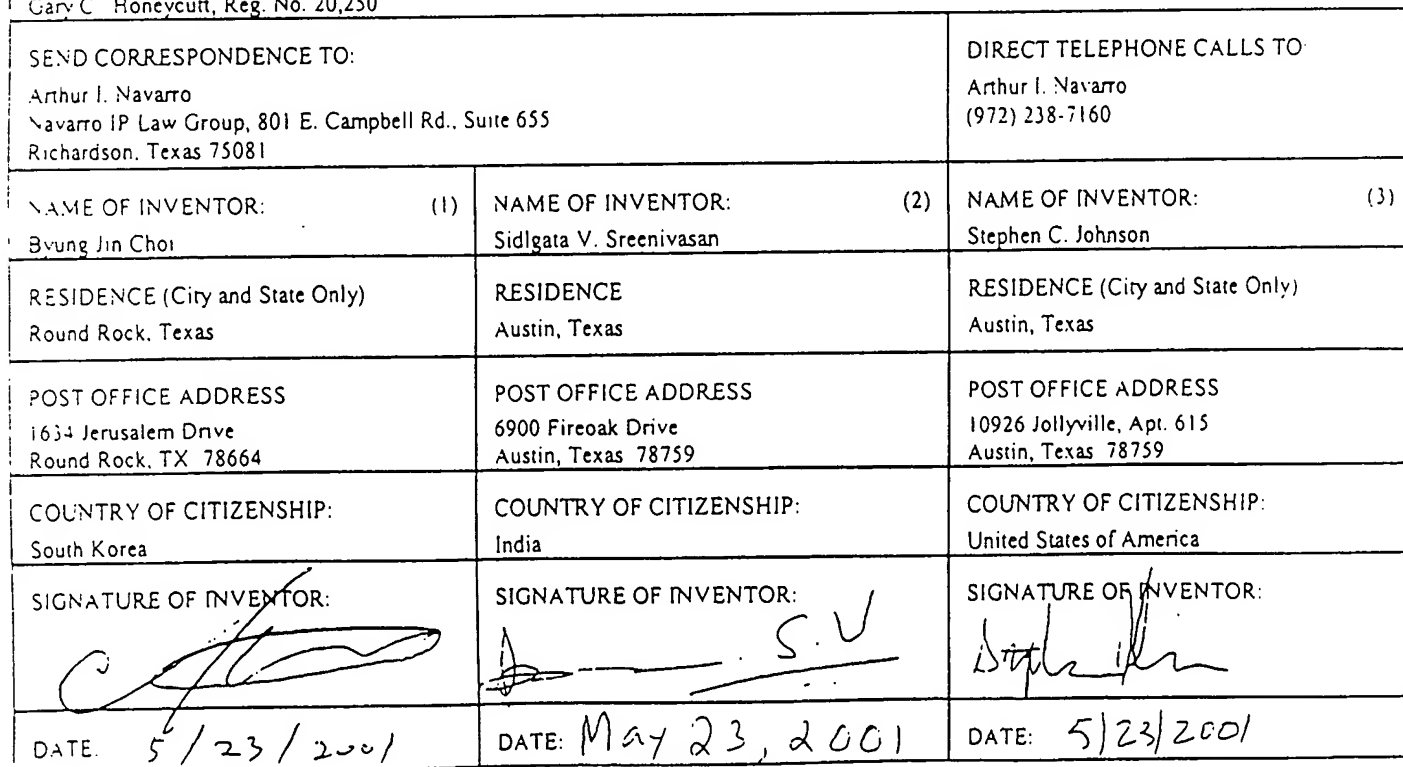 Gary C Honeycutt, Reg. No. 20,250
SEND CORRESPONDENCE TO:
Arthur I. Navarro
Navarro IP Law Group, 801 E. Campbell Rd., Suite 655
Richardson, Texas 75081
DIRECT TELEPHONE CALLS TO
Arthur I. Navarro
(972) 238-7160
NAME OF INVENTOR: (1)
Byung Jin Choi
NAME OF INVENTOR: (2)
Sidlgata V. Sreenivasan
NAME OF INVENTOR: (3)
Stephen C. Johnson
RESIDENCE (City and State Only)
Round Rock, Texas
RESIDENCE
Austin, Texas
RESIDENCE (City and State Only)
Austin, Texas
POST OFFICE ADDRESS
1634 Jerusalem Drive
Round Rock, TX 78664
POST OFFICE ADDRESS
6900 Fireoak Drive
Austin, Texas 78759
POST OFFICE ADDRESS
10926 Jollyville, Apt. 615
Austin, Texas 78759
COUNTRY OF CITIZENSHIP:
South Korea
COUNTRY OF CITIZENSHIP:
India
COUNTRY OF CITIZENSHIP:
United States of America
SIGNATURE OF INVENTOR:
SIGNATURE OF INVENTOR:
S.V
SIGNATURE OF INVENTOR:
DATE. 5/23/2001
DATE: May 23, 2001
DATE: 5/23/2001